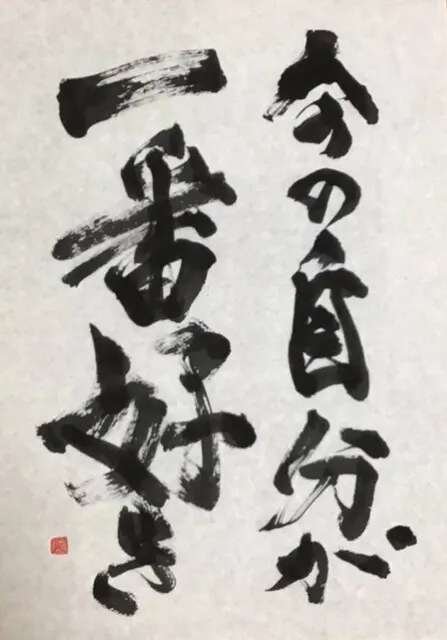 今の自分が
一番好き